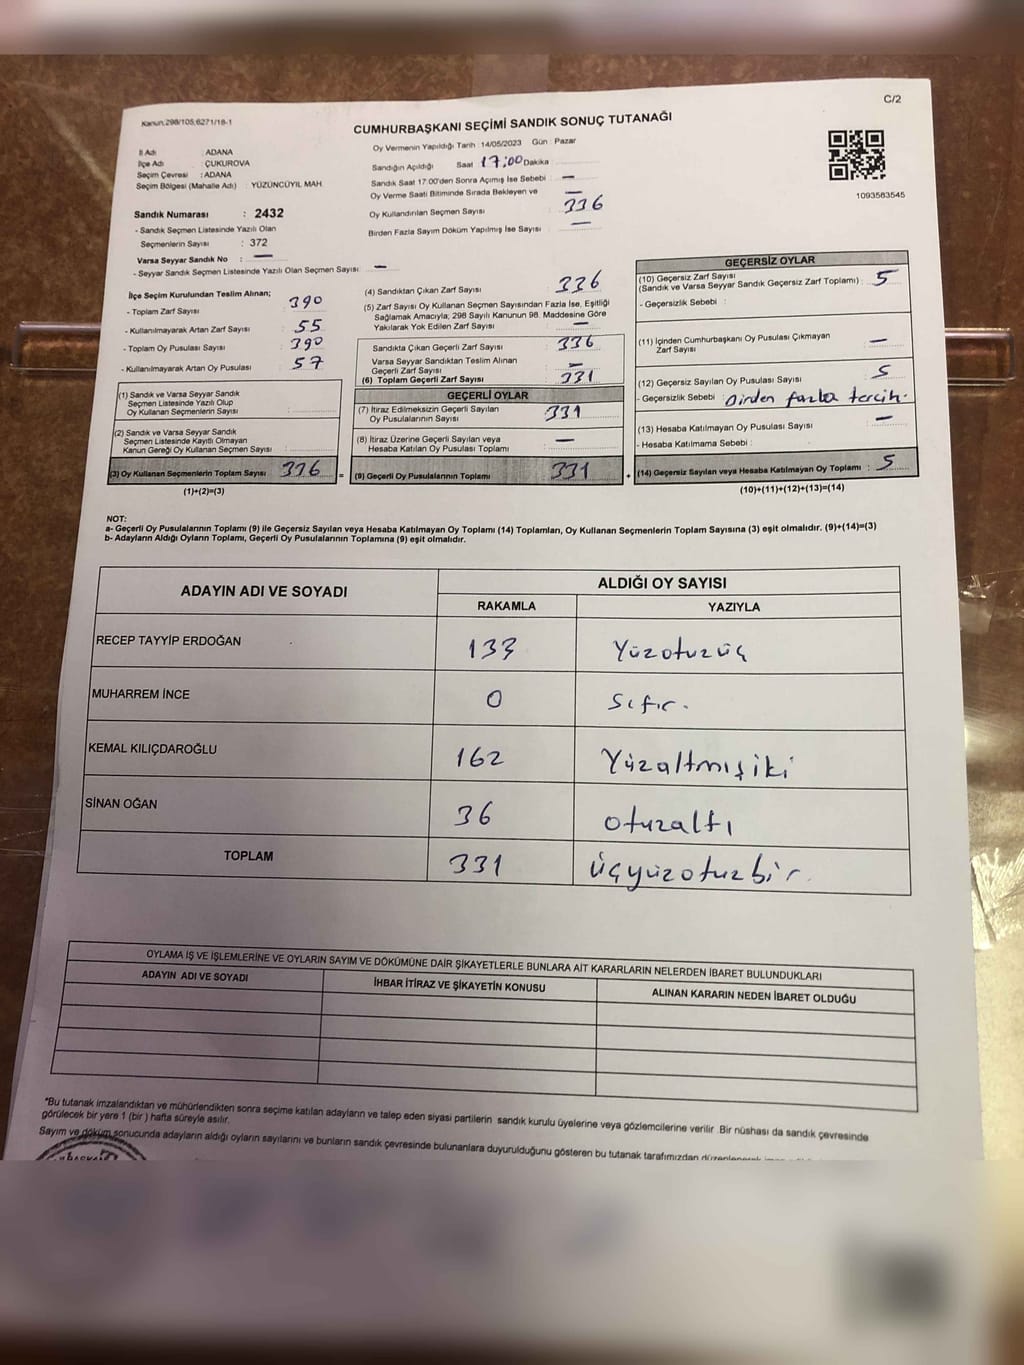 C/2
Kanun:298/105,6271/18-1
CUMHURBAŞKANI SEÇİMİ SANDIK SONUÇ TUTANAĞI
İl Adı : ADANA
İlçe Adı : ÇUKUROVA
Seçim Çevresi : ADANA
Seçim Bölgesi (Mahalle Adı) : YÜZÜNCÜYIL MAH.
Sandık Numarası : 2432
- Sandık Seçmen Listesinde Yazılı Olan
Seçmenlerin Sayısı : 372
Varsa Seyyar Sandık No : —
- Seyyar Sandık Seçmen Listesinde Yazılı Olan Seçmen Sayısı: —
Oy Vermenin Yapıldığı Tarih :14/05/2023 Gün : Pazar
Sandığın Açıldığı Saat 17:00 Dakika
Sandık Saat 17.00'den Sonra Açımış İse Sebebi : —
Oy Verme Saati Bitiminde Sırada Bekleyen ve —
Oy Kullandırılan Seçmen Sayısı 336
Birden Fazla Sayım Döküm Yapılmış İse Sayısı —
1093583545
İlçe Seçim Kurulundan Teslim Alınan;
- Toplam Zarf Sayısı : 390
- Kullanılmayarak Artan Zarf Sayısı : 55
- Toplam Oy Pusulası Sayısı : 390
- Kullanılmayarak Artan Oy Pusulası : 57
(1) Sandık ve Varsa Seyyar Sandık
Seçmen Listesinde Yazılı Olup
Oy Kullanan Seçmenlerin Sayısı :
(2) Sandık ve Varsa Seyyar Sandık
Seçmen Listesinde Kayıtlı Olmayan
Kanun Gereği Oy Kullanan Seçmen Sayısı :
(3) Oy Kullanan Seçmenlerin Toplam Sayısı : 336 =
(1)+(2)=(3)
(4) Sandıktan Çıkan Zarf Sayısı : 336
(5) Zarf Sayısı Oy Kullanan Seçmen Sayısından Fazla İse, Eşitliği
Sağlamak Amacıyla; 298 Sayılı Kanunun 98. Maddesine Göre
Yakılarak Yok Edilen Zarf Sayısı : —
Sandıkta Çıkan Geçerli Zarf Sayısı : 336
Varsa Seyyar Sandıktan Teslim Alınan
Geçerli Zarf Sayısı : —
(6) Toplam Geçerli Zarf Sayısı : 331
GEÇERLİ OYLAR
(7) İtiraz Edilmeksizin Geçerli Sayılan
Oy Pusulalarının Sayısı : 331
(8) İtiraz Üzerine Geçerli Sayılan veya
Hesaba Katılan Oy Pusulası Toplamı : —
(9) Geçerli Oy Pusulalarının Toplamı : 331 +
GEÇERSİZ OYLAR
(10) Geçersiz Zarf Sayısı
(Sandık ve Varsa Seyyar Sandık Geçersiz Zarf Toplamı) : 5
- Geçersizlik Sebebi :
(11) İçinden Cumhurbaşkanı Oy Pusulası Çıkmayan
Zarf Sayısı : —
(12) Geçersiz Sayılan Oy Pusulası Sayısı : 5
- Geçersizlik Sebebi : Birden fazla tercih.
(13) Hesaba Katılmayan Oy Pusulası Sayısı : —
- Hesaba Katılmama Sebebi :
(14) Geçersiz Sayılan veya Hesaba Katılmayan Oy Toplamı : 5
(10)+(11)+(12)+(13)=(14)
NOT:
a- Geçerli Oy Pusulalarının Toplamı (9) ile Geçersiz Sayılan veya Hesaba Katılmayan Oy Toplamı (14) Toplamları, Oy Kullanan Seçmenlerin Toplam Sayısına (3) eşit olmalıdır. (9)+(14)=(3)
b- Adayların Aldığı Oyların Toplamı, Geçerli Oy Pusulalarının Toplamına (9) eşit olmalıdır.
ADAYIN ADI VE SOYADI ALDIĞI OY SAYISI
RAKAMLA YAZIYLA
RECEP TAYYİP ERDOĞAN 133 Yüzotuzüç
MUHARREM İNCE 0 Sıfır.
KEMAL KILIÇDAROĞLU 162 Yüzaltmışiki
SİNAN OĞAN 36 otuzaltı
TOPLAM 331 Üçyüzotuzbir.
OYLAMA İŞ VE İŞLEMLERİNE VE OYLARIN SAYIM VE DÖKÜMÜNE DAİR ŞİKAYETLERLE BUNLARA AİT KARARLARIN NELERDEN İBARET BULUNDUKLARI
ADAYIN ADI VE SOYADI İHBAR İTİRAZ VE ŞİKAYETİN KONUSU ALINAN KARARIN NEDEN İBARET OLDUĞU
*Bu tutanak imzalandıktan ve mühürlendikten sonra seçime katılan adayların ve talep eden siyasi partilerin sandık kurulu üyelerine veya gözlemcilerine verilir .Bir nüshası da sandık çevresinde
görülecek bir yere 1 (bir ) hafta süreyle asılır.
Sayım ve döküm sonucunda adayların aldığı oyların sayılarını ve bunların sandık çevresinde bulunanlara duyurulduğunu gösteren bu tutanak tarafımızdan